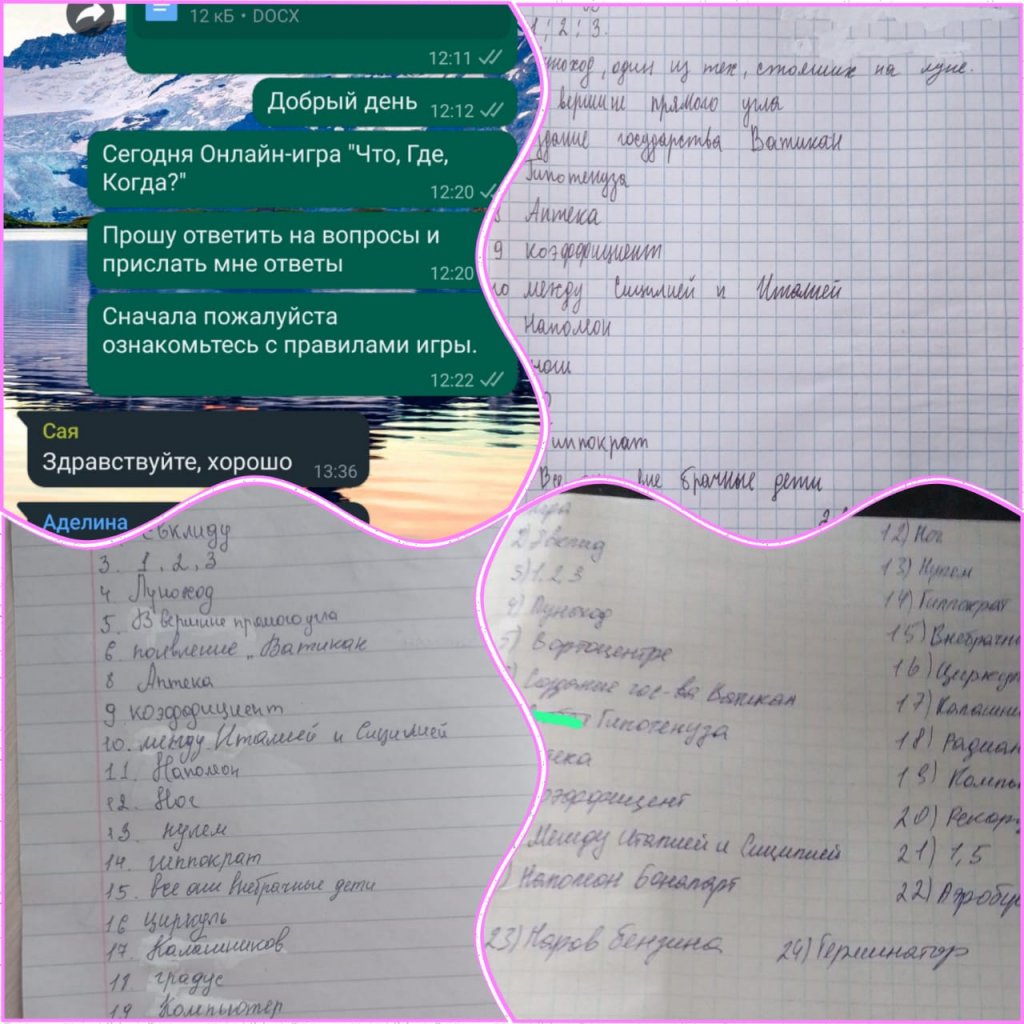 12 кБ • DOCX
12:11
Добрый день 12:12
Сегодня Онлайн-игра "Что, Где,
Когда?"
12:20
Прошу ответить на вопросы и
прислать мне ответы
12:20
Сначала пожалуйста
ознакомьтесь с правилами игры.
12:22
Сая
Здравствуйте, хорошо 13:36
Аделина
1; 2; 3.
один из тех, стоящих на луне.
вершине прямого угла
государства Ватикан
Гипотенуза
8 Аптека
9 коэффициент
между Сицилией и Италией
Наполеон
Гиппократ
Все вне брачные дети
Евклиду
3. 1, 2, 3
4. Луноход
5. В вершине прямого угла
6 появление „Ватикан
8 Аптека
9 коэффициент
10. между Италией и Сицилией
11. Наполеон
12. Ног
13. нулем
14. гиппократ
15. все они внебрачные дети
16 циркуль
17. Калашников
18. градус
19. Компьютер
2) Эвклид
3) 1, 2, 3
4) Луноход
5) В ортоцентре
Создание гос-ва Ватикан
Гипотенуза
Между Италией и Сицилией
Наполеон Бонапарт
12) Ног
13) Нулем
14) Гиппократ
15)
16)
17)
18)
19)
20)
21) 1,5
22)
23) Паров бензина 24) Терминатор